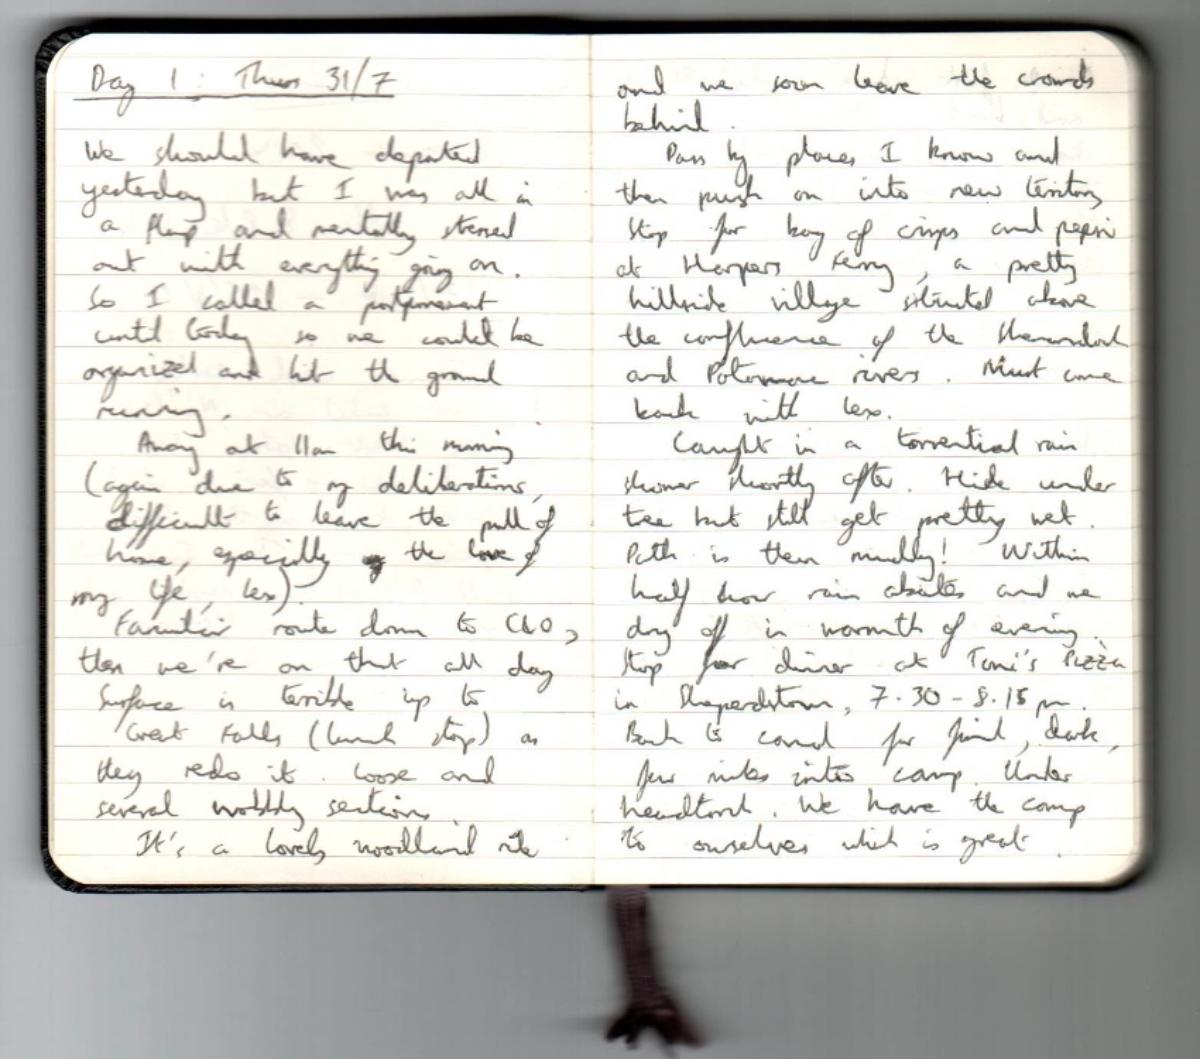 Day 1: Thurs 31/7
We should have departed
yesterday but I was all in
a flap and mentally stressed
out with everything going on.
So I called a postponement
until today so we could be
organized and hit the ground
running.
Away at 11am this morning
(again due to my deliberations,
difficult to leave the pull of
home, especially the love of
my life, Lex).
Familiar route down to C&O,
then we're on that all day
Surface is terrible up to
Great Falls (lunch stop) as
they redo it. Loose and
several wobbly sections.
It's a lovely woodland ride
and we soon leave the crowds
behind.
Pass by places I know and
then push on into new territory
Stop for bag of crisps and pepsi
at Harpers Ferry, a pretty
hillside village situated above
the confluence of the Shenandoah
and Potomac rivers. Must come
back with Lex.
Caught in a torrential rain
shower shortly after. Hide under
tree but still get pretty wet.
Path is then muddy! Within
half hour rain abates and we
dry off in warmth of evening.
Stop for dinner at Tony's Pizza
in Sheperdstown, 7.30-8.15 pm.
Back to canal for final, dark,
few miles into camp. Under
headtorch. We have the camp
to ourselves which is great.